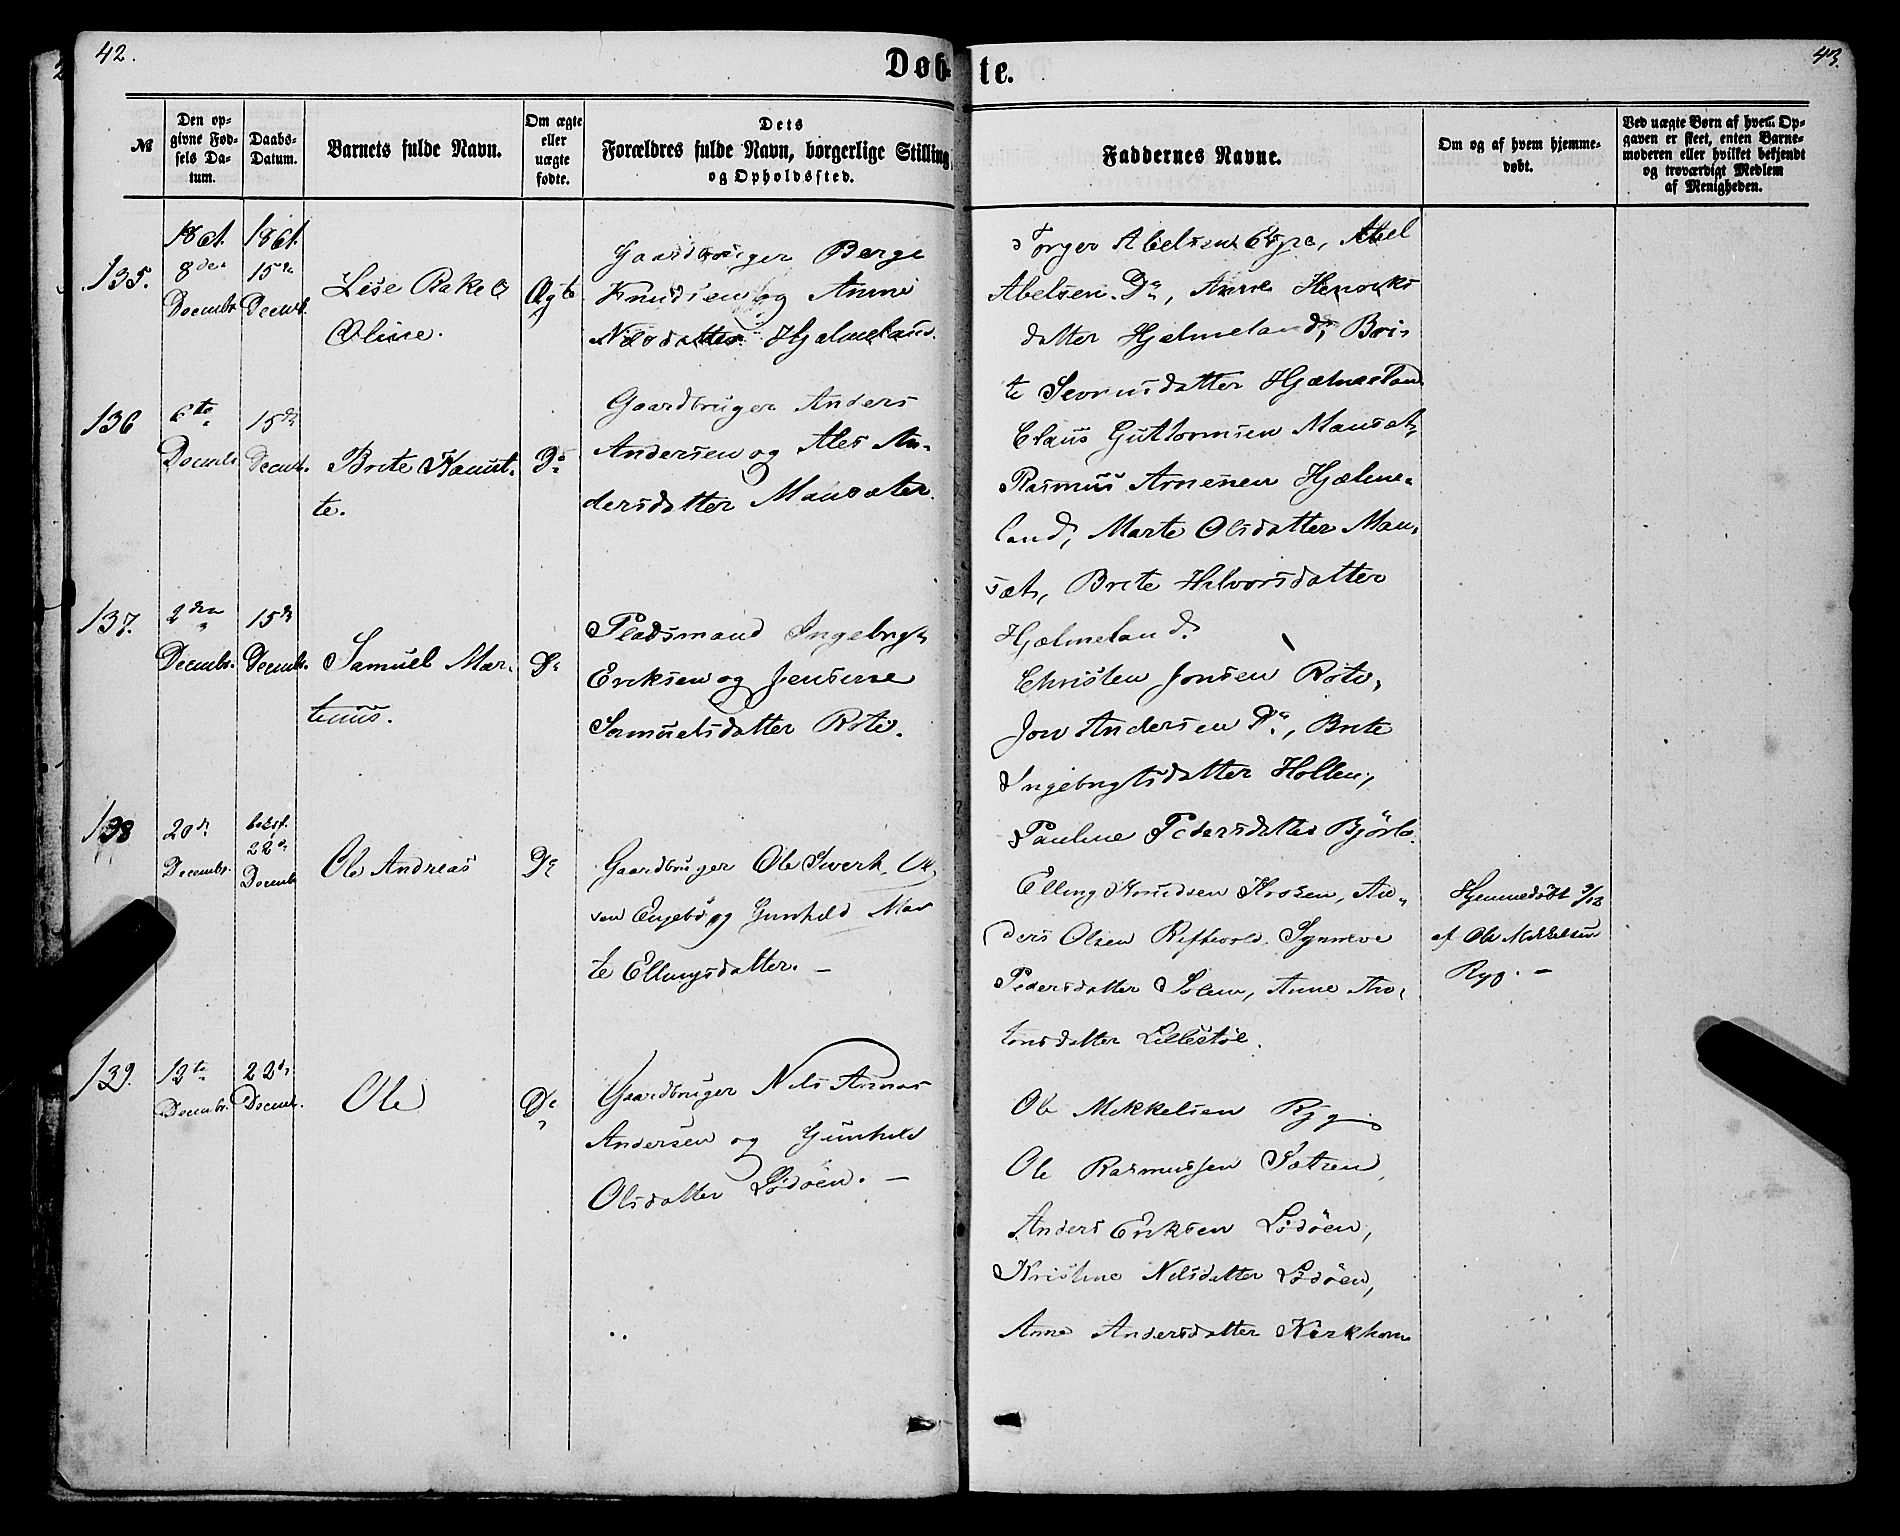 42.
Døb-
te.
43.
№
Den op-
givne Fød-
sels Da-
tum.
Daabs-
Datum.
Barnets fulde Navn.
Om ægte
eller
uægte
fødte.
Dets
Forældres fulde Navn, borgerlige Stilling
og Opholdssted.
Faddernes Navne.
Om og af hvem hjemme-
døbt.
Ved uægte Børn af hvem Op-
gaven er skeet, enten Barne-
moderen eller hvilket bekjendt
og troværdigt Medlem
af Menigheden.
135.
1861.
8de
Decembr
1861.
15de
Decemb.
Lise Rakel
Oline.
Ægte
Gaardbruger Berge
Knudsen og Anne
Nilsdatter Hjælmeland.
Torger Abelsen, Abel
Abelsen Do, Anne Henriks
datter Hjelmeland, Bri-
te Sevrinsdatter Hjælmeland
136
6te
Decmbr
15de
Decmb.
Brite Kamit-
te.
Do
Gaardbruger Anders
Andersen og Ales An-
dersdatter Mansæter.
Claus Guttormsen Mansæt,
Rasmus Arnesen Hjælme-
land, Marte Olsdatter Man-
sæt, Brite Halvorsdatter
Hjælmeland.
137.
2den
Decmbr.
15de
Decmbr.
Samuel Mar-
tinus.
Do
Pladsmand Ingebrigt
Eriksen og Jensine
Samuelsdatter Rote.
Christen Jonsen Rote,
Jon Andersen Do., Brite
Ingebrigtsdatter Hollen,
Pauline Pedersdatter Bjørlo.
138
20de
Decembr.
22de
Decmb
Ole Andreas
Do
Gaardbruger Ole Siverk. Ol-
sen Engebø og Gunhild Mar
te Ellingsdatter. –
Elling Knudsen Krosen, An-
ders Olsen Refskvold, Synneve
Pedersdatter Solem, Anne An-
tonsdatter Lillestøl.
Hjemmedøbt
af Ole Mikkelsen
Ryg. –
139.
13te
Decmbr.
22de
Decmb.
Ole
Do
Gaardbruger Nils Annas
Andersen og Gunhild
Olsdatter Lødøen. –
Ole Mikkelsen Ryg
Ole Rasmussen Sætren,
Anders Eriksen Lødøen,
Kristine Nilsdatter Lødøen,
Anne Andersdatter Kirkhorn